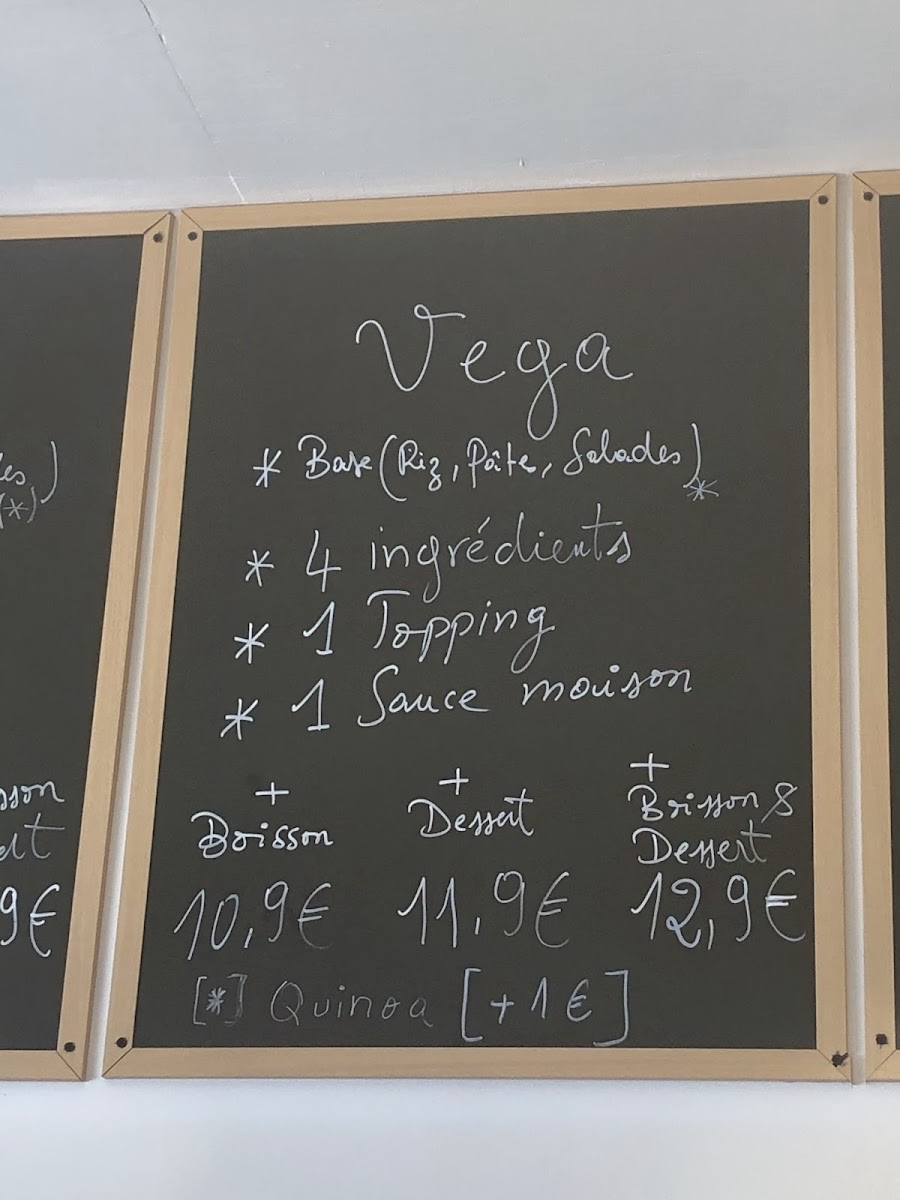 Vega
* Base (Riz, Pâte, Salades)*
* 4 ingrédients
* 1 Topping
* 1 Sauce maison
+ Boisson
10,9€
+ Dessert
11,9€
+ Boisson &
Dessert
12,9€
[*] Quinoa [+1€]
les)
(*)
sson
9€